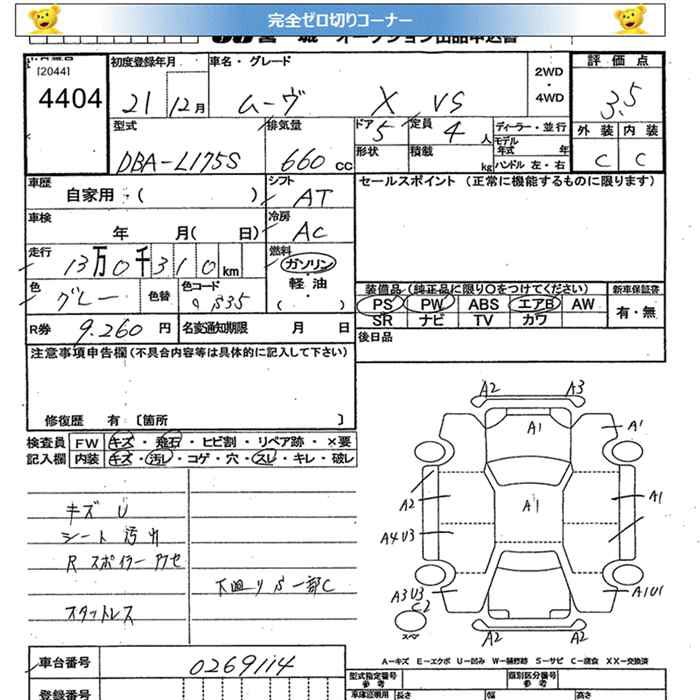 完全ゼロ切りコーナー
宮 城 オークション出品申込書
[2044]
4404
初度登録年月 車名・グレード 2WD ・ 4WD 評価点
21 12月 ムーヴ X VS 3.5
型式 排気量 ドア 5 定員 4人 ディーラー・並行 外装 内装
DBA-L175S 660 cc 形状 積載 kg モデル年式 年 C C
ハンドル 左・右
車歴 自家用・( ) シフト AT セールスポイント (正常に機能するものに限ります)
車検 年 月( 日) 冷房 AC
走行 13万0千310km 燃料 ガソリン・軽油・( )
色 グレー 色替 色コード S35
装備品(純正品に限り○をつけてください) 新車保証書
PS PW ABS エアB AW 有・無
SR ナビ TV カワ
R券 9.260円 名変通知期限 月 日 後日品
注意事項申告欄(不具合内容等は具体的に記入して下さい)
修復歴 有 〔箇所 〕
検査員 FW キズ・飛石・ヒビ割・リペア跡・×要
記入欄 内装 キズ・汚レ・コゲ・穴・スレ・キレ・破レ
キズ U
シート 汚レ
R スポイラー アクセ
下廻りS一部C
スタットレス
A2 A3
A1 A1
A2 A1 A1
A4 U3
A3U3 C2 A1U1
スペア
A2 A2
A-キズ E-エクボ U-凹み W-補修跡 S-サビ C-腐食 XX-交換済
車台番号 0269114 型式指定番号 参考 類別区分番号 参考
登録番号 車庫証明用 参考 長さ 幅 高さ